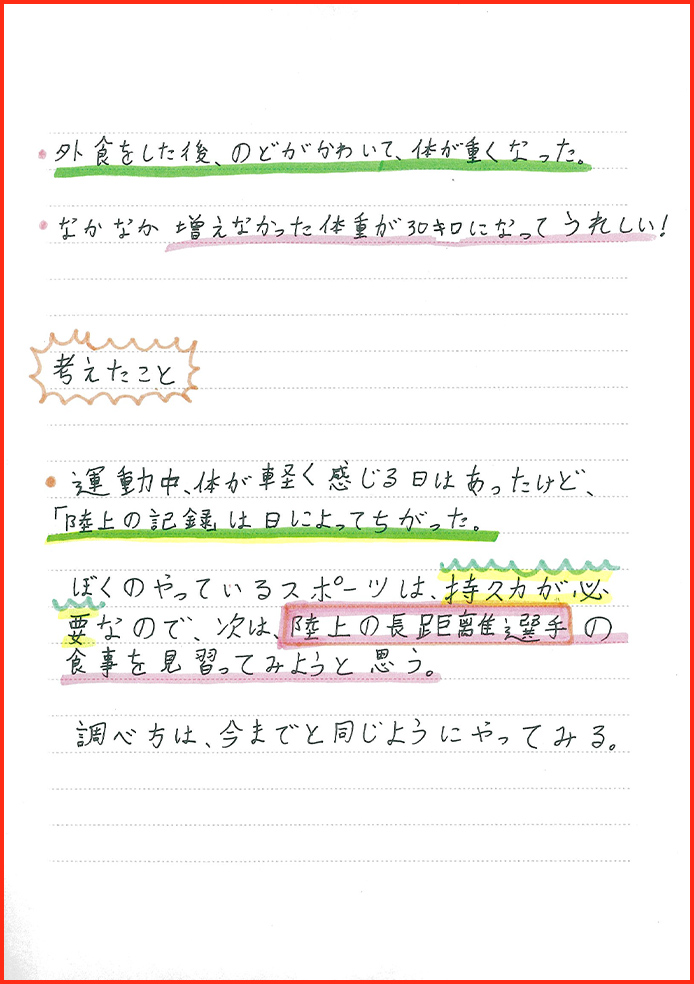 ・外食をした後、のどがかわいて、体が重くなった。
・なかなか増えなかった体重が30キロになってうれしい!
考えたこと
・運動中、体が軽く感じる日はあったけど、
「陸上の記録」は日によってちがった。
ぼくのやっているスポーツは、持久力が必
要なので、次は、陸上の長距離選手の
食事を見習ってみようと思う。
調べ方は、今までと同じようにやってみる。